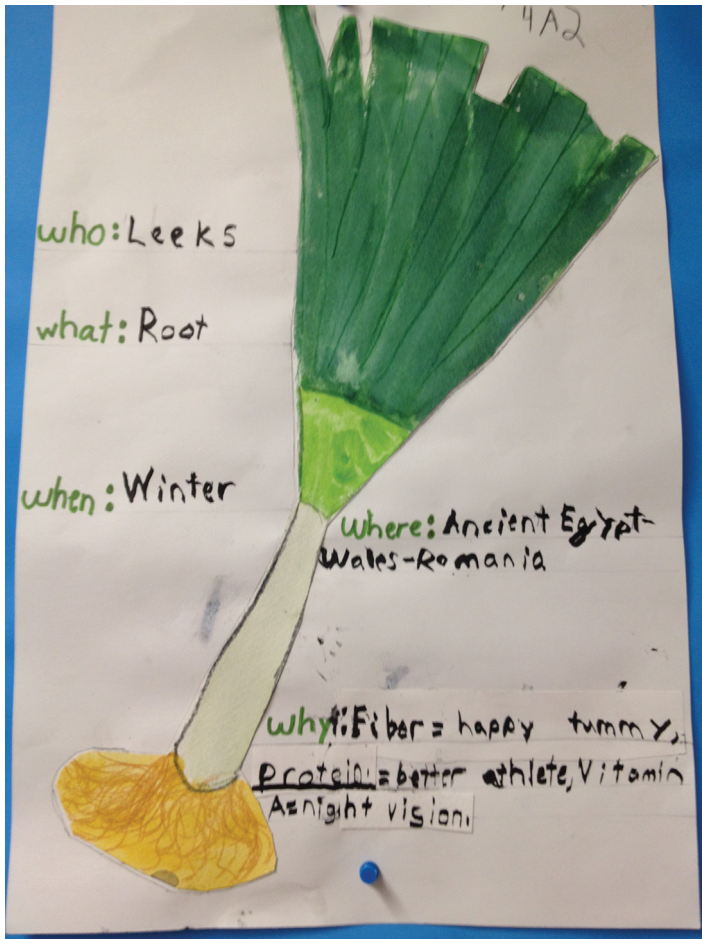 4A2
who: Leeks
what: Root
when: Winter
where: Ancient Egypt-
Wales-Romania
why: Fiber = happy tummy,
Protein = better athlete, Vitamin
A=night vision.